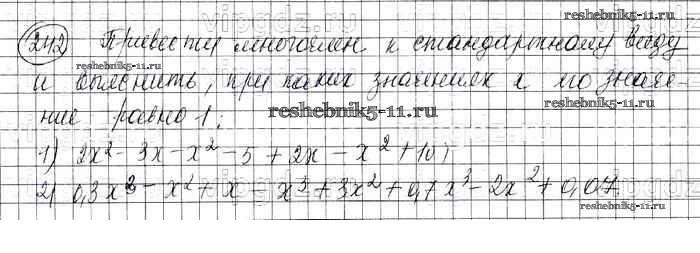 242 Привести многочлен к стандартному виду
и выяснить, при каких значениях x его значе-
ние равно 1:
1) 2x² - 3x - x² - 5 + 2x - x² + 10;
2) 0,3x³ - x² + x - x³ + 3x² + 0,7x³ - 2x² + 0,07
reshebnik5-11.ru
reshebnik5-11.ru
reshebnik5-11.ru
reshebnik5-11.ru
reshebnik5-11.ru
vipgdz